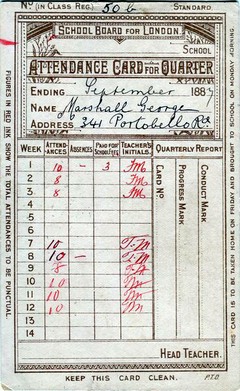 No (IN CLASS REG.) 50 b STANDARD
SCHOOL BOARD FOR LONDON.
SCHOOL
ATTENDANCE CARD FOR QUARTER
ENDING September 1883
NAME Marshall George
ADDRESS 341 Portobello Rd.
WEEK ATTEND-ANCES ABSENCES PAID for SCHOOL FEES TEACHER'S INITIALS. QUARTERLY REPORT
CARD No
PROGRESS MARK
CONDUCT MARK
1 10 – 3 FM
2 8 FM
3 8 FM
4
5
6
7 10 T.M
8 10 – T.M
9 8 T.M
10 10
11 10
12 10
13
14
HEAD TEACHER.
KEEP THIS CARD CLEAN.
P.T.O.
FIGURES IN RED INK SHOW THE TOTAL ATTENDANCES TO BE PUNCTUAL
THIS CARD IS TO BE TAKEN HOME ON FRIDAY AND BROUGHT TO SCHOOL ON MONDAY MORNING